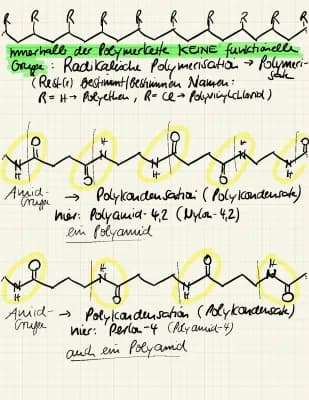 R R R R R R R
innerhalb der Polymerkette KEINE funktionelle
Gruppe: Radikalische Polymerisation → Polymeri-
sate
(Rest(e) bestimmt/bestimmen Namen:
R = H → Polyethen, R = Cl → Polyvinylchlorid)
O H H O O H H O
N N N N
O O
Amid-
Gruppe → Polykondensation (Polykondensate)
hier: Polyamid-4,2 (Nylon-4,2)
ein Polyamid
O H O H
N N N N
H O H O
Amid-
Gruppe → Polykondensation (Polykondensate)
hier: Perlon-4 (Polyamid-4)
auch ein Polyamid